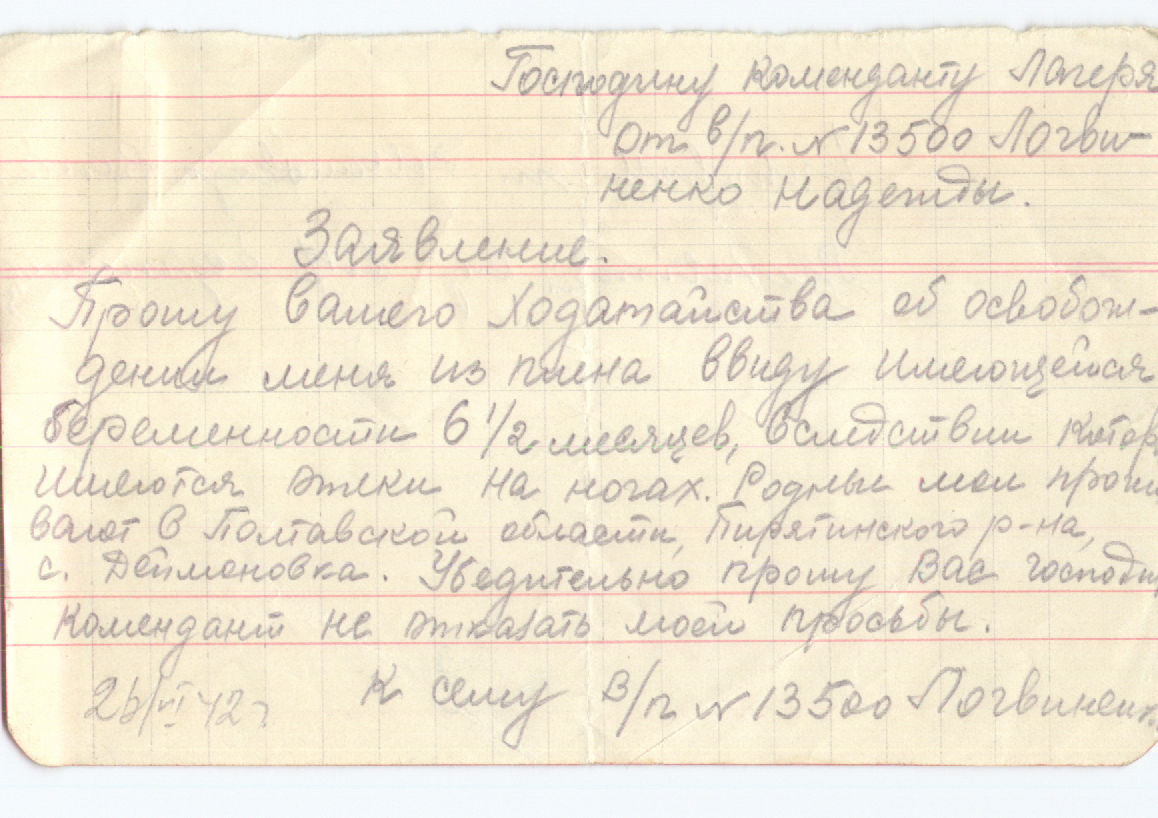 Господину Коменданту Лагеря
От в/п. № 13500 Логви-
ненко Надежды.
Заявление.
Прошу Вашего Ходатайства об освобож-
дении меня из плена ввиду имеющейся
беременности 6 1/2 месяцев, вследствии котор
имеются отеки на ногах. Родные мои прожи
вают в Полтавской области, Пирятинского р-на,
с. Деймановка. Убедительно прошу Вас господин
Комендант не отказать моей просьбы.
К сему в/п № 13500 Логвиненк
26/VI 42 г.